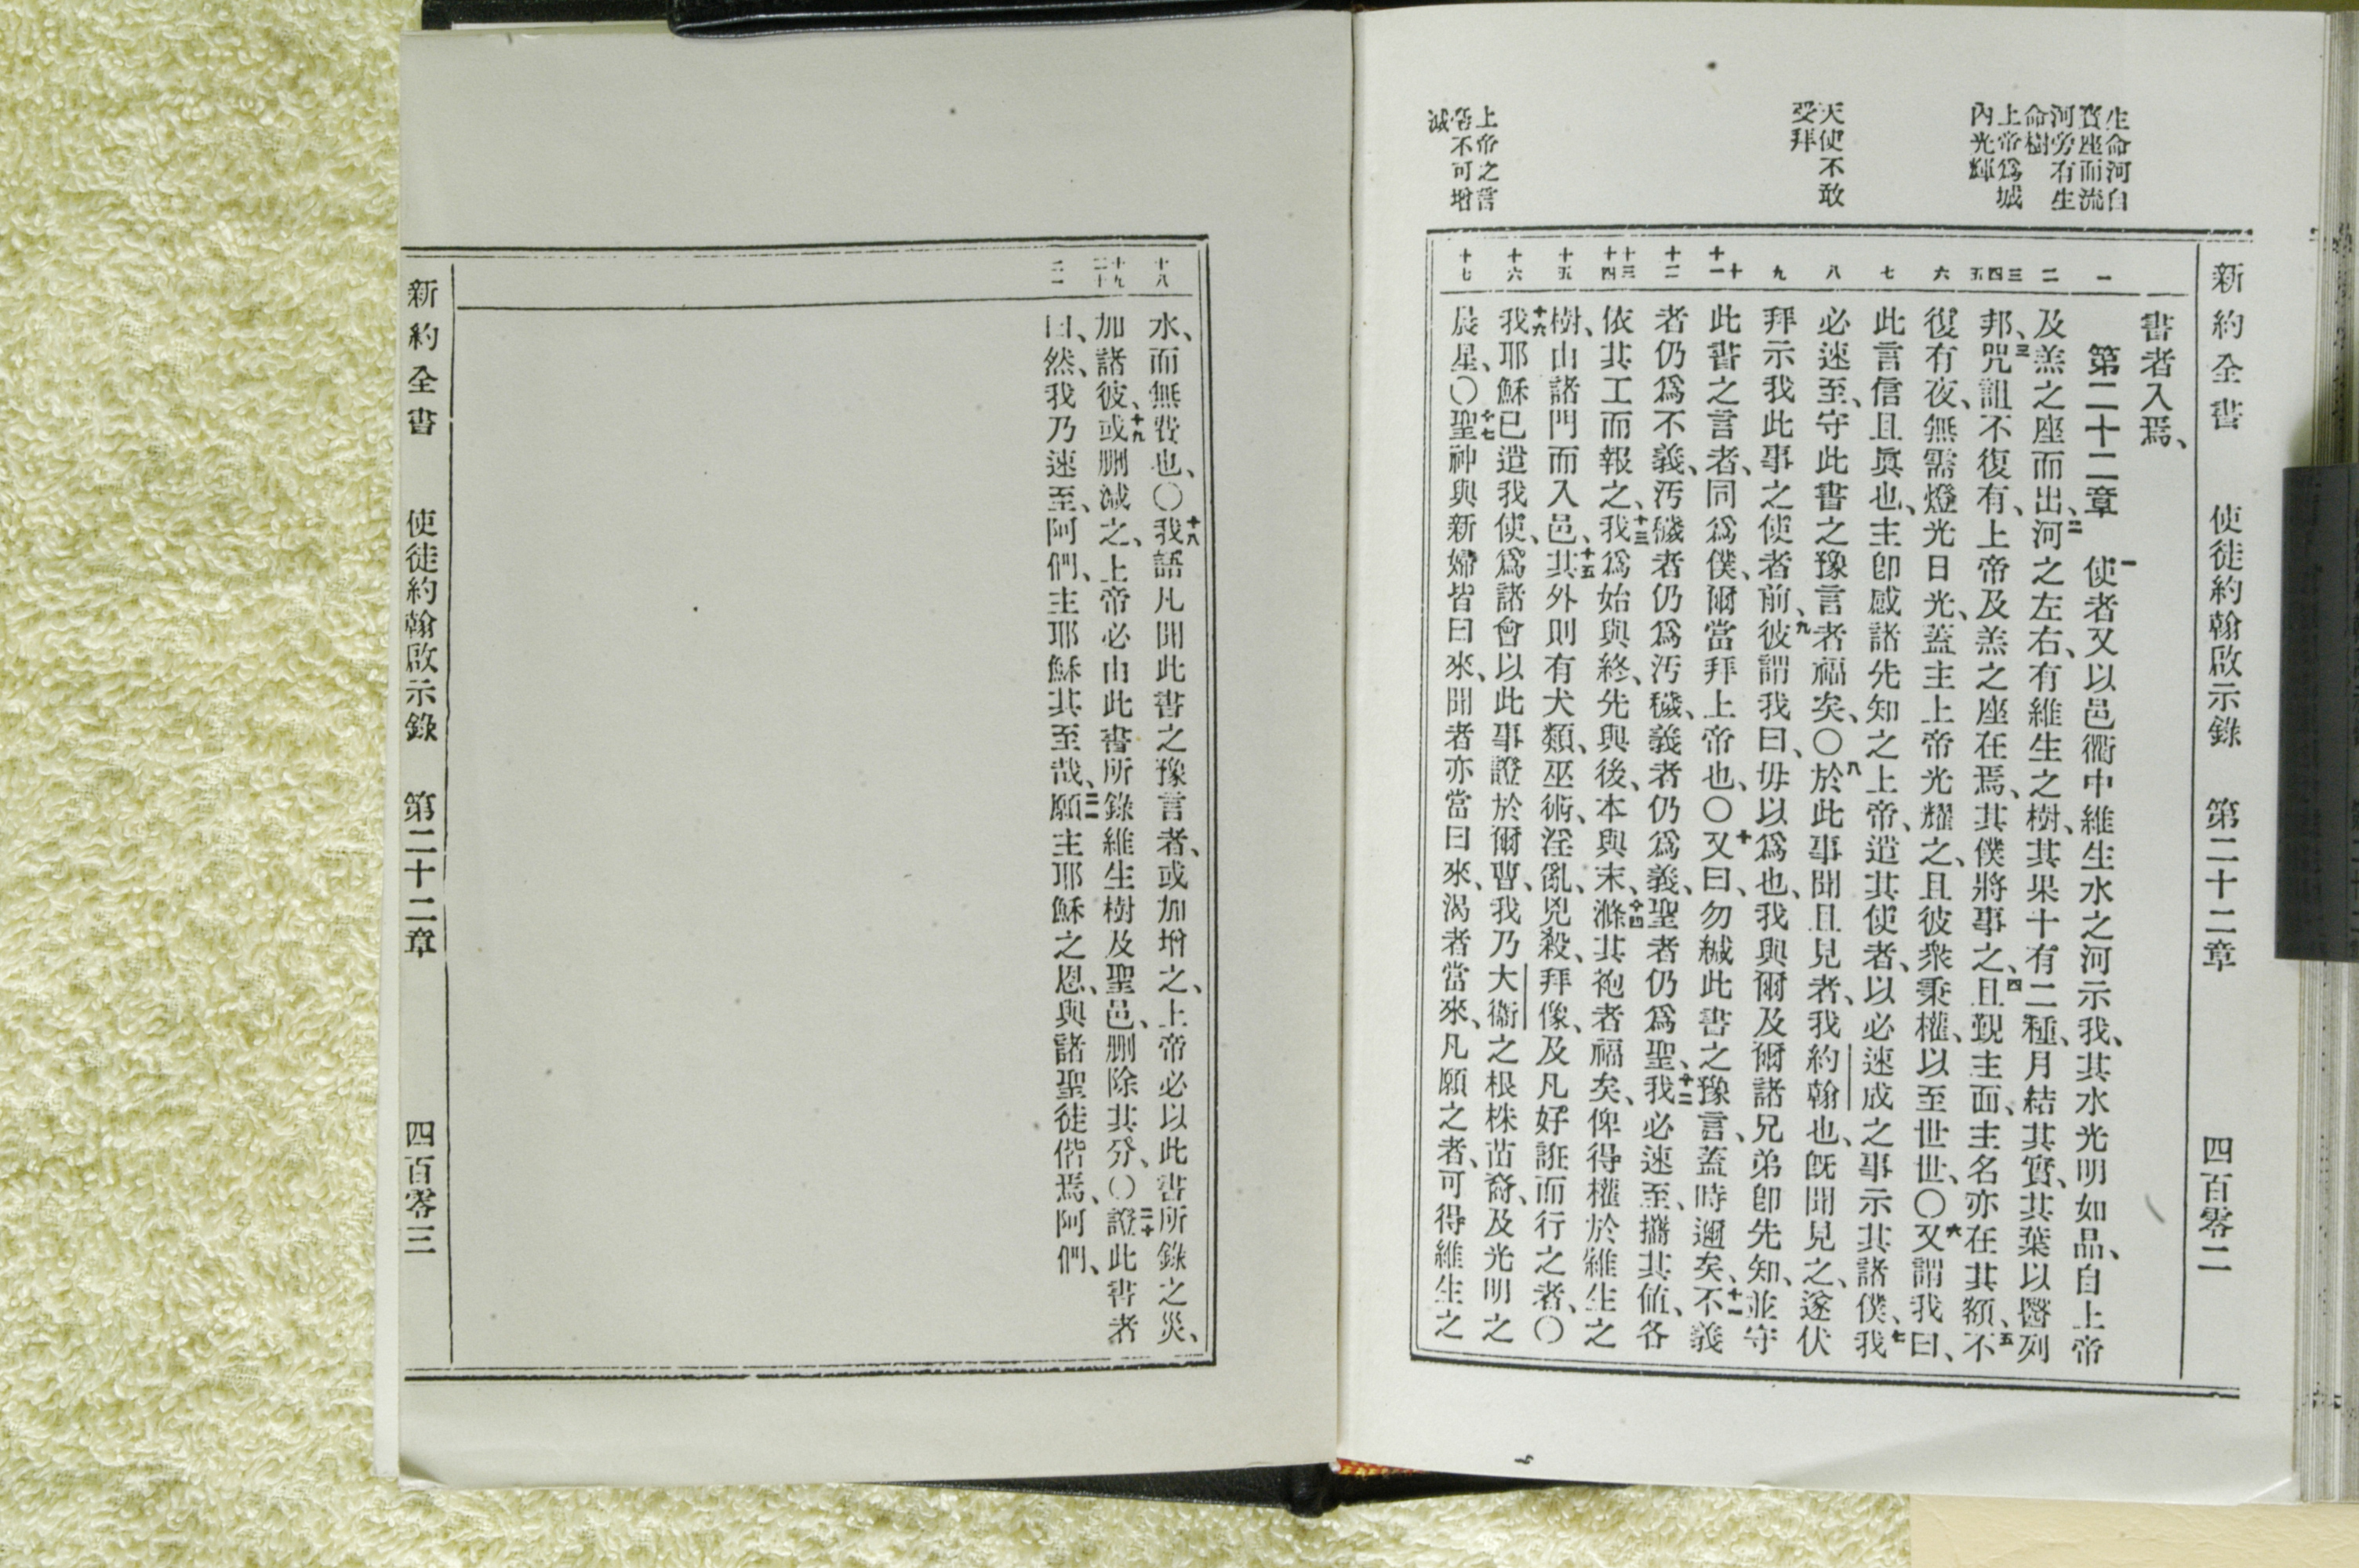 新約全書 使徒約翰啟示錄 第二十二章 四百零二
生命河自
寶座而流
河旁有生
命樹
上帝爲城
內光輝
天使不敢
受拜
上帝之言
不可增
減
書者入焉、
第二十二章 一使者又以邑衢中維生水之河示我、其水光明如晶、自上帝
及羔之座而出、二河之左右、有維生之樹、其果十有二種、月結其實、其葉以醫列
邦、三咒詛不復有、上帝及羔之座在焉、其僕將事之、四且覲主面、主名亦在其額、五不
復有夜、無需燈光日光、蓋主上帝光耀之、且彼衆秉權、以至世世、〇六又謂我曰、
此言信且眞也、主卽感諸先知之上帝、遣其使者、以必速成之事示其諸僕、七我
必速至、守此書之豫言者福矣、〇八於此事聞且見者、我約翰也、旣聞見之、遂伏
拜示我此事之使者前、九彼謂我曰、毋以爲也、我與爾及爾諸兄弟卽先知、並守
此書之言者、同爲僕、爾當拜上帝也、〇十又曰、勿緘此書之豫言、蓋時邇矣、十一不義
者仍爲不義、汚穢者仍爲汚穢、義者仍爲義、聖者仍爲聖、十二我必速至、攜其値、各
依其工而報之、十三我爲始與終、先與後、本與末、十四滌其袍者福矣、俾得權於維生之
樹、由諸門而入邑、十五其外則有犬類、巫術、淫亂、兇殺、拜像、及凡好誑而行之者、〇
十六我耶穌已遣我使、爲諸會以此事證於爾曹、我乃大衞之根株苗裔、及光明之
晨星、〇十七聖神與新婦皆曰來、聞者亦當曰來、渴者當來、凡願之者、可得維生之
一
二
三
四
五
六
七
八
九
十
十一
十二
十三
十四
十五
十六
十七
十八
十九
二十
二一
水、而無費也、〇十八我語凡聞此書之豫言者、或加增之、上帝必以此書所錄之災、
加諸彼、十九或刪減之、上帝必由此書所錄維生樹及聖邑、刪除其分、〇二十證此書者
曰、然、我乃速至、阿們、主耶穌其至哉、二一願主耶穌之恩、與諸聖徒偕焉、阿們、
新約全書 使徒約翰啟示錄 第二十二章 四百零三